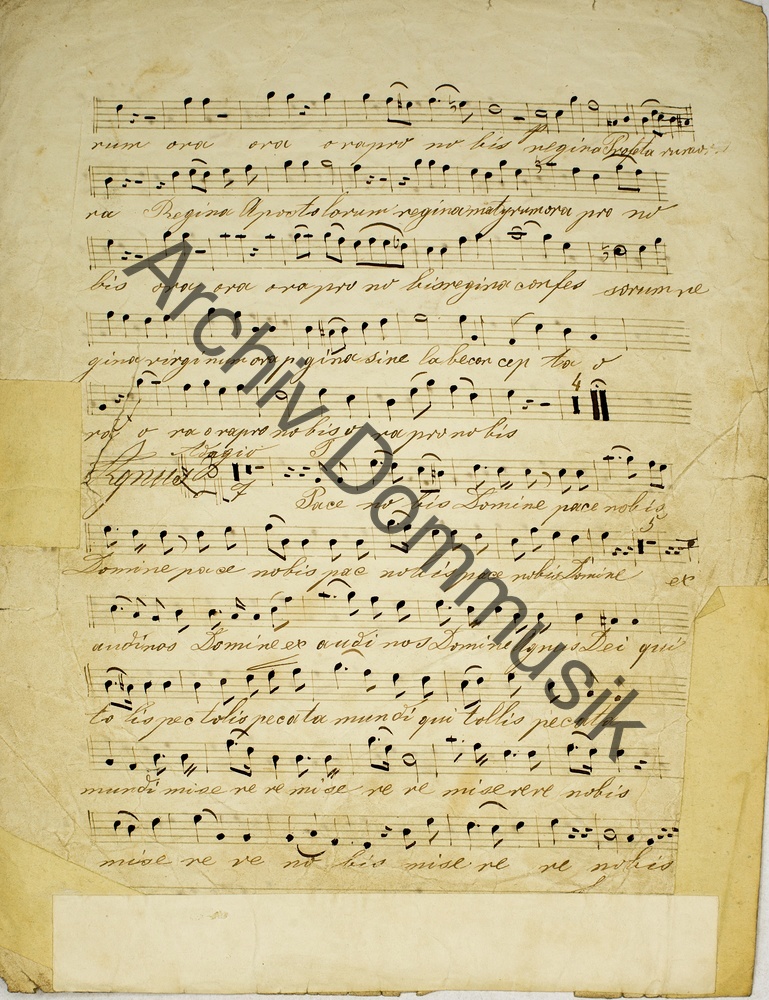 rum ora ora ora pro no bis regina Profeta rum ora
ra Regina Apostolorum regina matyrum ora pro no
bis ora ora ora pro no bis regina confes sorum re
gina virginum ora p gina sine la be con cep ta o
4
ra o ra o rapro nobis o ra pro nobis
Adagio
Agnus 7
Pace no bis Domine pace nobis
5
Domine pace nobis pac nobis pace nobis Domine ex
audi nos Domine ex audi nos Domine gnus Dei qui
to lis pec tolis pecata mundi qui tollis pecata
mundi mise re re mise re re mise rere nobis
mise re re no bis mise re re nobis
Archiv Dommusik